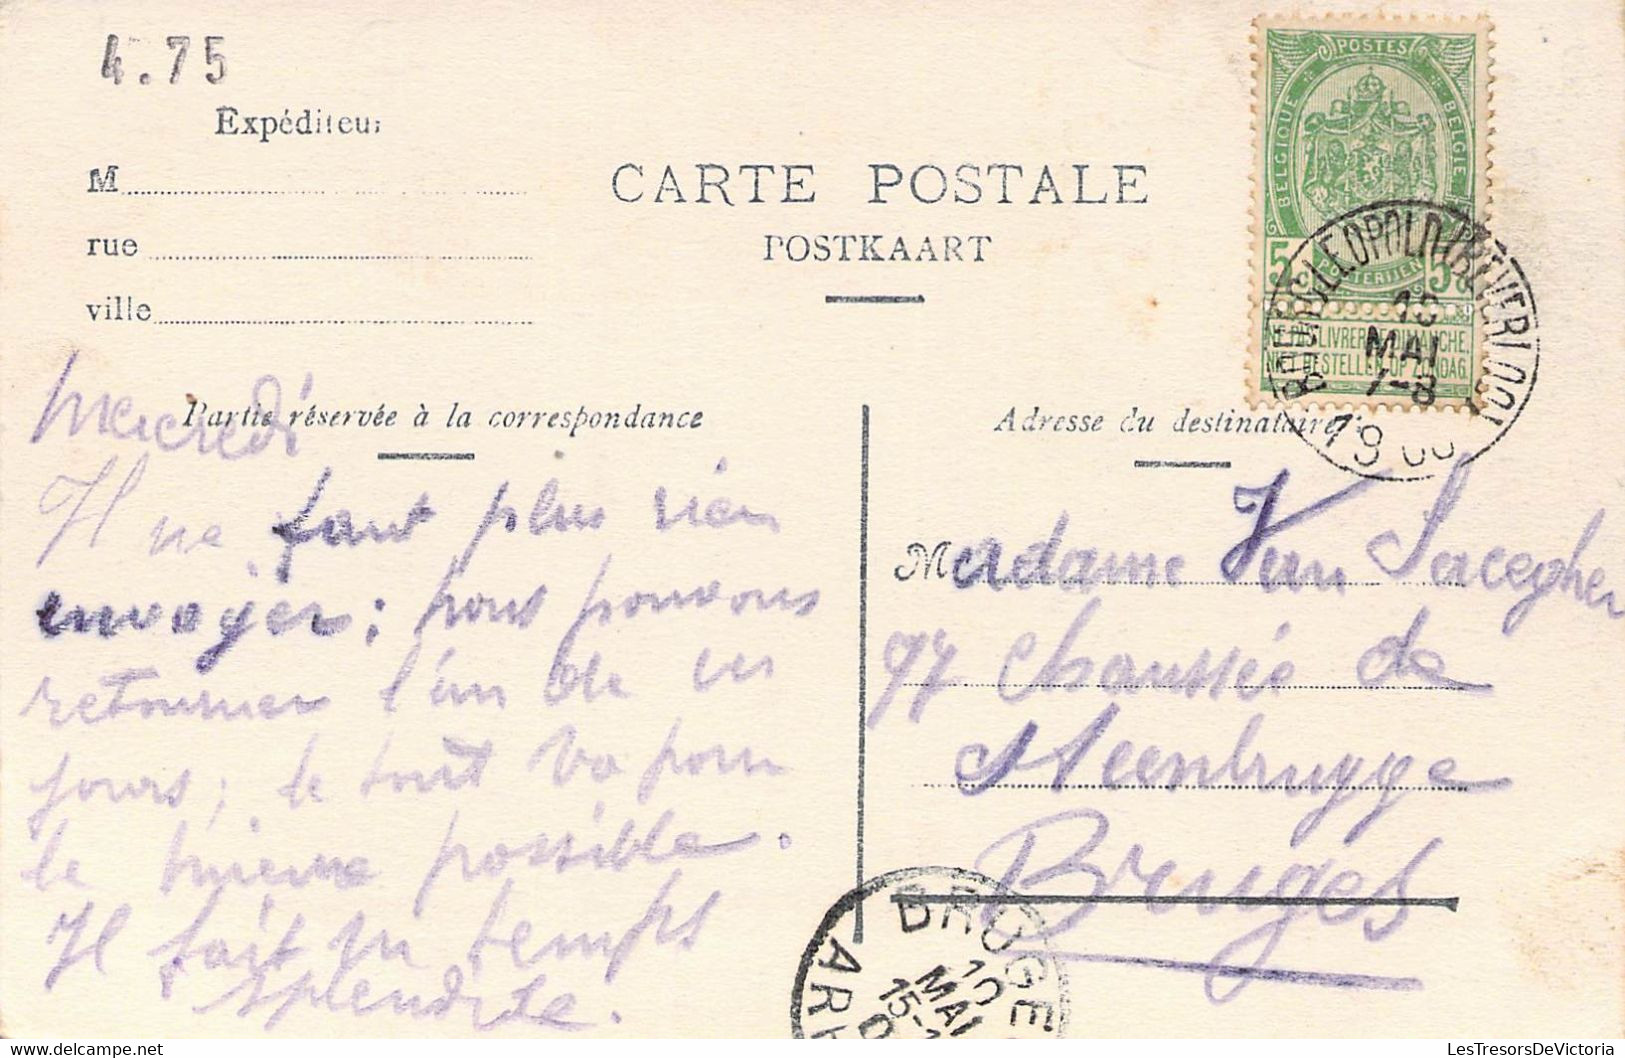 4.75
Expéditeur
M
rue
ville
CARTE POSTALE
POSTKAART
POSTES
BELGIQUE
BELGIE
5c
POSTERIJEN
5c
NE PAS LIVRER LE DIMANCHE.
NIET BESTELLEN OP ZONDAG.
10
MAI
7-8
Partie réservée à la correspondance
Adresse du destinataire
Mercredi
Il ne faut plus rien
envoyer; nous pouvons
retourner l'un de ces
jours; le tout va pour
le mieux possible.
Il fait un temps
splendide.
Madame Van
97 Chaussée de
Steenbrugge
Bruges
BRUGE
10
MAI
15-
LesTresorsDeVictoria